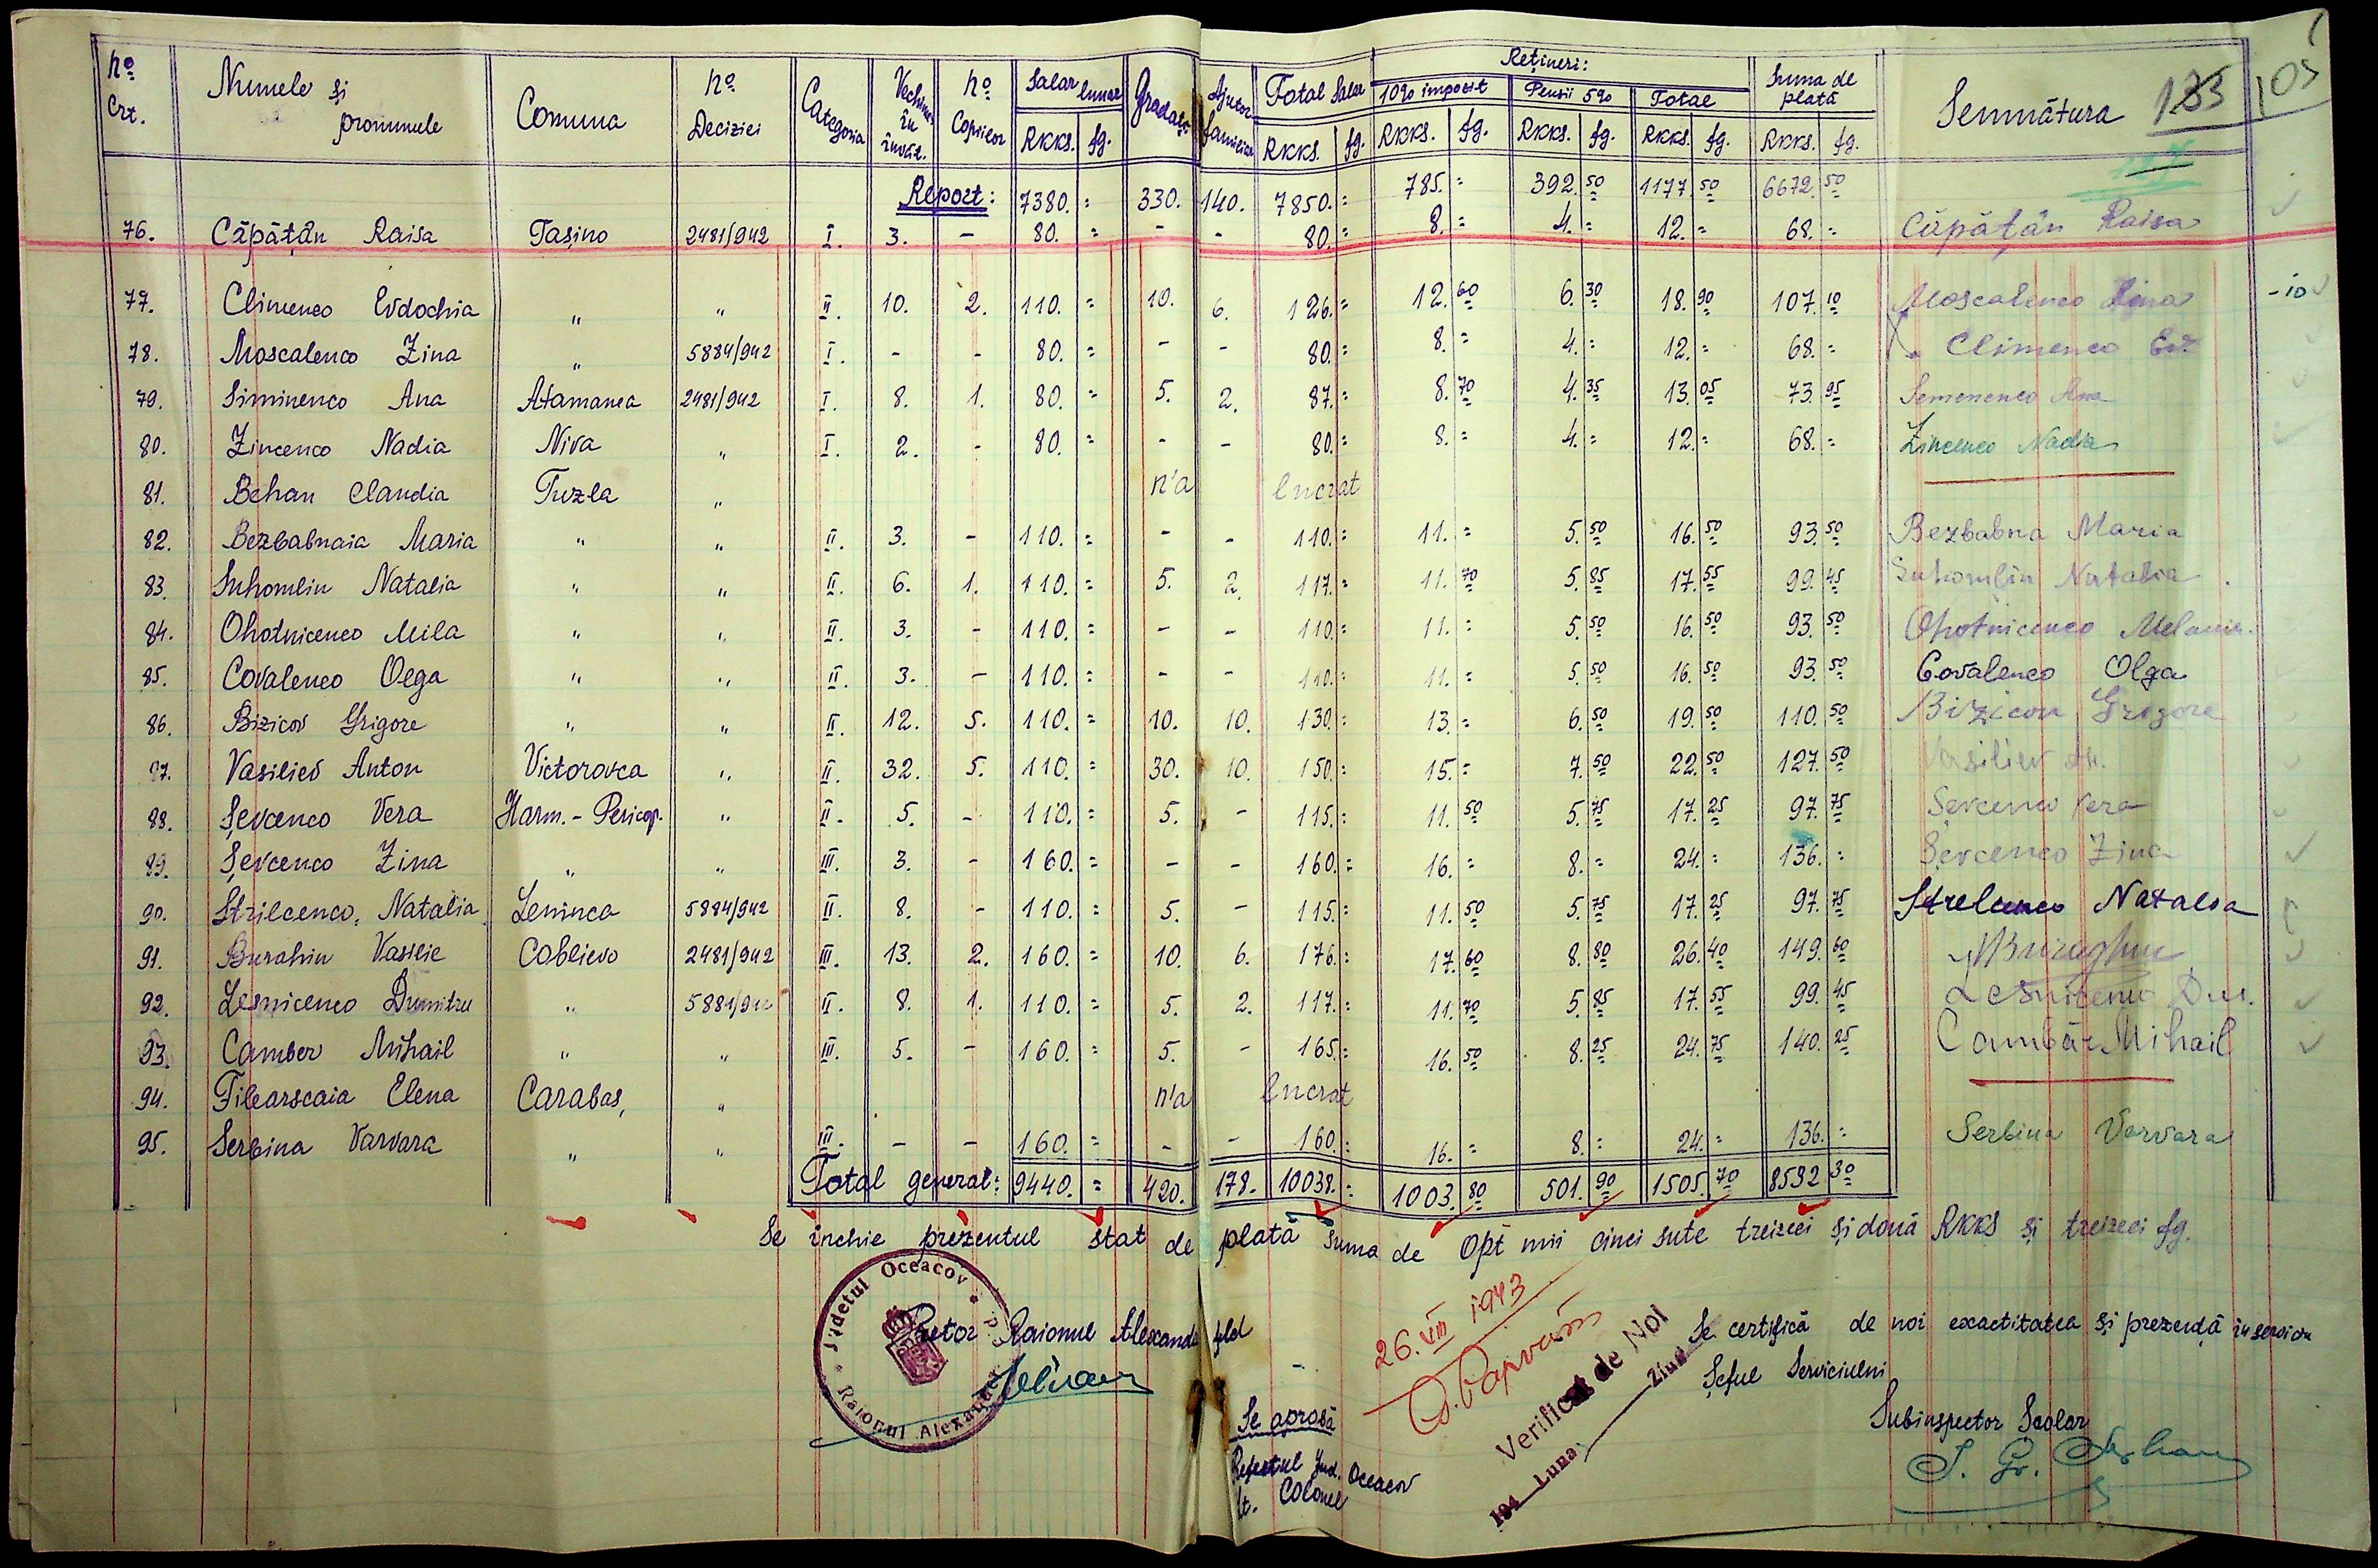 Nº Crt. Numele și pronumele Comuna Nº Deciziei Categoria Vechime în învăț. Nº Copiilor Salar lunar Gradații Ajutor familiar Total Salar Rețineri: Suma de plată Semnătura 105
10% impozit Pensii 5% Total
RKKS. fg. RKKS. fg. RKKS. fg. RKKS. fg. RKKS. fg. RKKS. fg.
Report: 7380. = 330. 140. 7850. = 785. = 392. 50 1177. 50 6672. 50
76. Căpățân Raisa Tașino 2481/942 I. 3. - 80. = - - 80. = 8. = 4. = 12. = 68. = Căpățân Raisa
77. Climenco Evdochia " " II. 10. 2. 110. = 10. 6. 126. = 12. 60 6. 30 18. 90 107. 10 Moscalenco Zina -10
78. Moscalenco Zina " 5884/942 I. - - 80. = - - 80. = 8. = 4. = 12. = 68. = Climenco Ev.
79. Siminenco Ana Atamanca 2481/942 I. 8. 1. 80. = 5. 2. 87. = 8. 70 4. 35 13. 05 73. 95 Semenenco Ana
80. Zincenco Nadia Niva " I. 2. - 80. = - - 80. = 8. = 4. = 12. = 68. = Zincenco Nadia
81. Behan Claudia Tuzla " n'a lucrat
82. Bezbabnaia Maria " " II. 3. - 110. = - - 110. = 11. = 5. 50 16. 50 93. 50 Bezbabna Maria
83. Suhomlin Natalia " " II. 6. 1. 110. = 5. 2. 117. = 11. 70 5. 85 17. 55 99. 45 Suhomlin Natalia
84. Ohotnicenco Mila " " II. 3. - 110. = - - 110. = 11. = 5. 50 16. 50 93. 50 Ohotnicenco Melania
85. Covalenco Olga " " II. 3. - 110. = - - 110. = 11. = 5. 50 16. 50 93. 50 Covalenco Olga
86. Bizicov Grigore " " II. 12. 5. 110. = 10. 10. 130. = 13. = 6. 50 19. 50 110. 50 Bizicov Grigore
87. Vasiliev Anton Victorovca " II. 32. 5. 110. = 30. 10. 150. = 15. = 7. 50 22. 50 127. 50 Vasiliev An.
88. Șevcenco Vera Harm.-Pericop. " II. 5. - 110. = 5. - 115. = 11. 50 5. 75 17. 25 97. 75 Șevcenco Vera
89. Șevcenco Zina " " III. 3. - 160. = - - 160. = 16. = 8. = 24. = 136. = Șevcenco Zina
90. Strilcenco Natalia Leninca 5884/942 II. 8. - 110. = 5. - 115. = 11. 50 5. 75 17. 25 97. 75 Strelcenco Natalia
91. Burahin Vasilie Coblievo 2481/942 III. 13. 2. 160. = 10. 6. 176. = 17. 60 8. 80 26. 40 149. 60
92. Lesnicenco Dumitru " 5884/942 II. 8. 1. 110. = 5. 2. 117. = 11. 70 5. 85 17. 55 99. 45 Lesnicenco Dm.
93. Camber Mihail " " III. 5. - 160. = 5. - 165. = 16. 50 8. 25 24. 75 140. 25 Cambăr Mihail
94. Filearscaia Elena Carabaș, " n'a lucrat
95. Serbina Varvara " " III. - - 160. = - - 160. = 16. = 8. = 24. = 136. = Serbina Varvara
Total general: 9440. = 420. 178. 10038. = 1003. 80 501. 90 1505. 70 8532 30
Se închie prezentul stat de plată suma de Opt mii cinci sute treizeci și două RKKS și treizeci fg.
Județul Oceacov
Raionul Alexandrfeld
Pretor Raionul Alexanderfeld
26.VIII 1943
Verificat de Noi
194 Luna Ziua
Se certifică de noi exactitatea și prezența în serviciu
Șeful Serviciului
Subinspector Școlar
Se aprobă
Prefectul Jud. Oceacov
Lt. Colonel